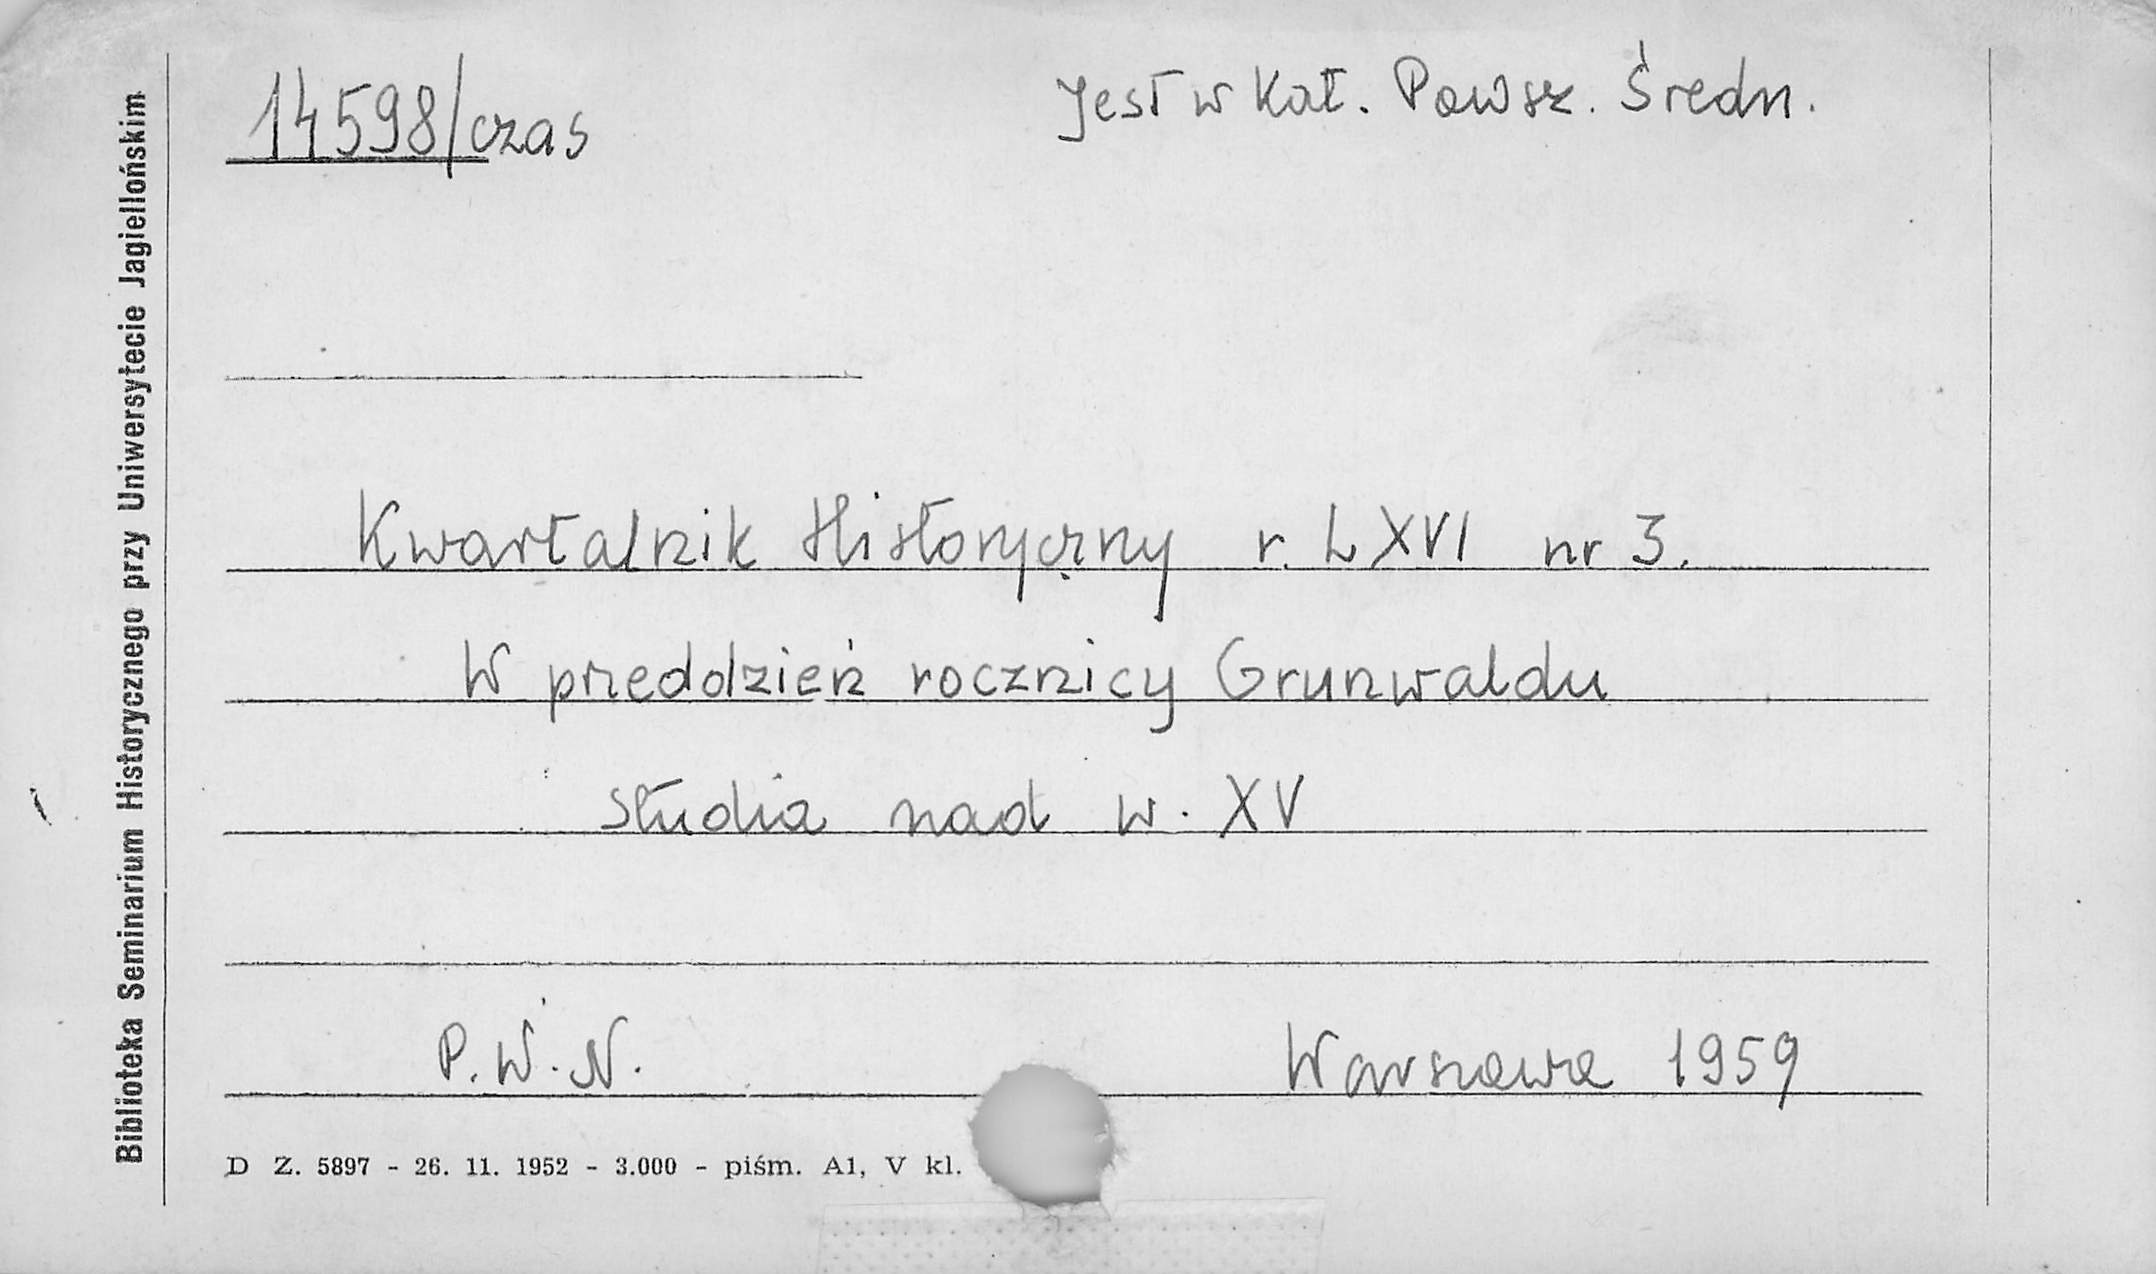 14598/czas
Jest w Kat. Powsz. Średn.
Biblioteka Seminarium Historycznego przy Uniwersytecie Jagiellońskim
Kwartalnik Historyczny r. LXVI nr 3.
W przeddzień rocznicy Grunwaldu
Studia nad w. XV
P.W.N. Warszawa 1959
D Z. 5897 - 26. 11. 1952 - 3.000 - piśm. A1, V kl.